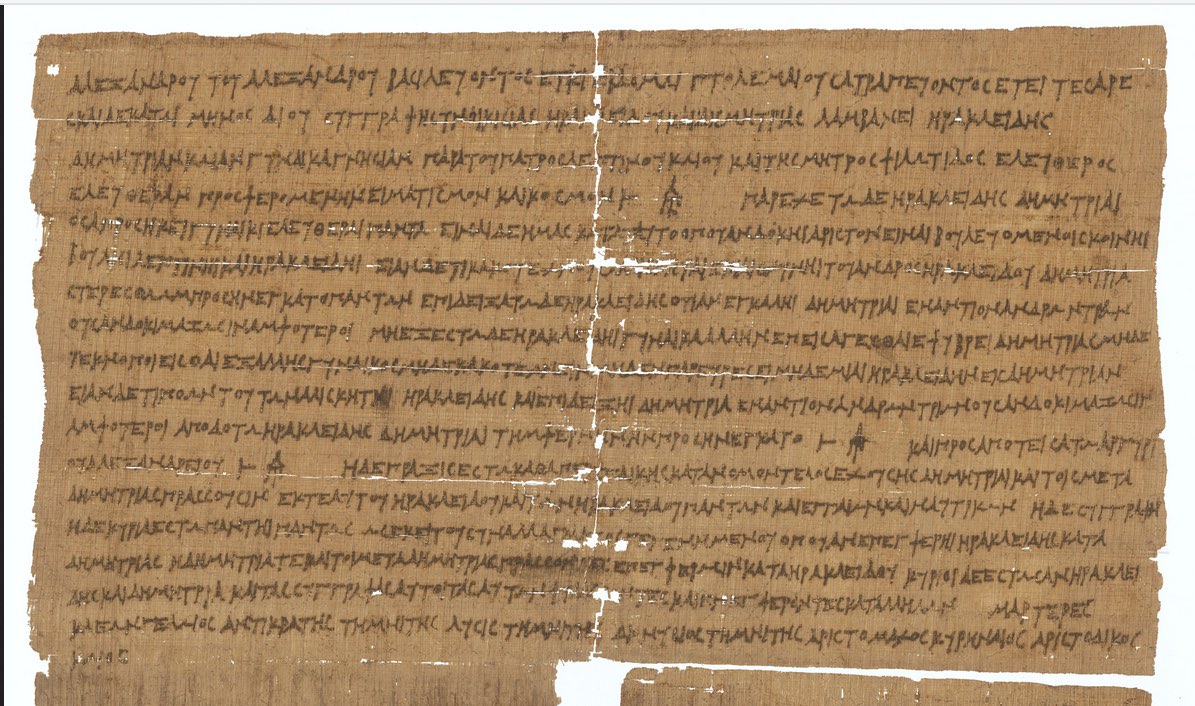 ΑΛΕΞΑΝΔΡΟΥ ΤΟΥ ΑΛΕΞΑΝΔΡΟΥ ΒΑΣΙΛΕΥΟΝΤΟΣ ΕΤΕΙ ΕΒΔΟΜΩΙ ΠΤΟΛΕΜΑΙΟΥ ΣΑΤΡΑΠΕΥΟΝΤΟΣ ΕΤΕΙ ΤΕΣΑΡΕ
ΣΚΑΙΔΕΚΑΤΩΙ ΜΗΝΟΣ ΔΙΟΥ ΣΥΓΓΡΑΦΗ ΣΥΝΟΙΚΙΣΙΑΣ ΗΡΑΚΛΕΙΔΟΥ ΚΑΙ ΔΗΜΗΤΡΙΑΣ ΛΑΜΒΑΝΕΙ ΗΡΑΚΛΕΙΔΗΣ
ΔΗΜΗΤΡΙΑΝ ΚΩΙΑΝ ΓΥΝΑΙΚΑ ΓΝΗΣΙΑΝ ΠΑΡΑ ΤΟΥ ΠΑΤΡΟΣ ΛΕΠΤΙΝΟΥ ΚΩΙΟΥ ΚΑΙ ΤΗΣ ΜΗΤΡΟΣ ΦΙΛΩΤΙΔΟΣ ΕΛΕΥΘΕΡΟΣ
ΕΛΕΥΘΕΡΑΝ ΠΡΟΣΦΕΡΟΜΕΝΗΝ ΕΙΜΑΤΙΣΜΟΝ ΚΑΙ ΚΟΣΜΟΝ ⊢ Α ΠΑΡΕΧΕΤΩ ΔΕ ΗΡΑΚΛΕΙΔΗΣ ΔΗΜΗΤΡΙΑΙ
ΟΣΑ ΠΡΟΣΗΚΕΙ ΓΥΝΑΙΚΙ ΕΛΕΥΘΕΡΑΙ ΠΑΝΤΑ ΕΙΝΑΙ ΔΕ ΗΜΑΣ ΚΑΤΑ ΤΑΥΤΟ ΟΠΟΥ ΑΝ ΔΟΚΗΙ ΑΡΙΣΤΟΝ ΕΙΝΑΙ ΒΟΥΛΕΥΟΜΕΝΟΙΣ ΚΟΙΝΗΙ
ΒΟΥΛΗΙ ΛΕΠΤΙΝΗΙ ΚΑΙ ΗΡΑΚΛΕΙΔΗΙ ΕΙΑΝ ΔΕ ΤΙ ΚΑΚΟΤΕΧΝΟΥΣΑ ΑΛΙΣΚΗΤΑΙ ΕΠΙ ΑΙΣΧΥΝΗΙ ΤΟΥ ΑΝΔΡΟΣ ΗΡΑΚΛΕΙΔΟΥ ΔΗΜΗΤΡΙΑ
ΣΤΕΡΕΣΘΩ ΩΜ ΠΡΟΣΗΝΕΓΚΑΤΟ ΠΑΝΤΩΝ ΕΠΙΔΕΙΞΑΤΩ ΔΕ ΗΡΑΚΛΕΙΔΗΣ ΟΤΙ ΑΝ ΕΓΚΑΛΗΙ ΔΗΜΗΤΡΙΑΙ ΕΝΑΝΤΙΟΝ ΑΝΔΡΩΝ ΤΡΙΩΝ
ΟΥΣ ΑΝ ΔΟΚΙΜΑΖΩΣΙΝ ΑΜΦΟΤΕΡΟΙ ΜΗ ΕΞΕΣΤΩ ΔΕ ΗΡΑΚΛΕΙΔΗΙ ΓΥΝΑΙΚΑ ΑΛΛΗΝ ΕΠΕΙΣΑΓΕΣΘΑΙ ΕΦ ΥΒΡΕΙ ΔΗΜΗΤΡΙΑΣ ΜΗΔΕ
ΤΕΚΝΟΠΟΙΕΙΣΘΑΙ ΕΞ ΑΛΛΗΣ ΓΥΝΑΙΚΟΣ ΜΗΔΕ ΚΑΚΟΤΕΧΝΕΙΝ ΜΗΔΕΝ ΠΑΡΕΥΡΕΣΕΙ ΜΗΔΕΜΙΑΙ ΗΡΑΚΛΕΙΔΗΝ ΕΙΣ ΔΗΜΗΤΡΙΑΝ
ΕΙΑΝ ΔΕ ΤΙ ΠΟΩΝ ΤΟΥΤΩΝ ΑΛΙΣΚΗΤΑΙ ΗΡΑΚΛΕΙΔΗΣ ΚΑΙ ΕΠΙΔΕΙΞΗΙ ΔΗΜΗΤΡΙΑ ΕΝΑΝΤΙΟΝ ΑΝΔΡΩΝ ΤΡΙΩΝ ΟΥΣ ΑΝ ΔΟΚΙΜΑΖΩΣΙΝ
ΑΜΦΟΤΕΡΟΙ ΑΠΟΔΟΤΩ ΗΡΑΚΛΕΙΔΗΣ ΔΗΜΗΤΡΙΑΙ ΤΗΜ ΦΕΡΝΗΝ ΗΝ ΠΡΟΣΗΝΕΓΚΑΤΟ ⊢ Α ΚΑΙ ΠΡΟΣΑΠΟΤΕΙΣΑΤΩ ΑΡΓΥΡΙ
ΟΥ ΑΛΕΞΑΝΔΡΕΙΟΥ ⊢ Α Η ΔΕ ΠΡΑΞΙΣ ΕΣΤΩ ΚΑΘΑΠΕΡ ΕΓ ΔΙΚΗΣ ΚΑΤΑ ΝΟΜΟΝ ΤΕΛΟΣ ΕΧΟΥΣΗΣ ΔΗΜΗΤΡΙΑΙ ΚΑΙ ΤΟΙΣ ΜΕΤΑ
ΔΗΜΗΤΡΙΑΣ ΠΡΑΣΣΟΥΣΙΝ ΕΚ ΤΕ ΑΥΤΟΥ ΗΡΑΚΛΕΙΔΟΥ ΚΑΙ ΤΩΝ ΗΡΑΚΛΕΙΔΟΥ ΠΑΝΤΩΝ ΚΑΙ ΕΓΓΑΙΩΝ ΚΑΙ ΝΑΥΤΙΚΩΝ Η ΔΕ ΣΥΓΓΡΑΦΗ
ΗΔΕ ΚΥΡΙΑ ΕΣΤΩ ΠΑΝΤΗΙ ΠΑΝΤΩΣ ΩΣ ΕΚΕΙ ΤΟΥ ΣΥΝΑΛΛΑΓΜΑΤΟΣ ΓΕΓΕΝΗΜΕΝΟΥ ΟΠΟΥ ΑΝ ΕΠΕΓΦΕΡΗΙ ΗΡΑΚΛΕΙΔΗΣ ΚΑΤΑ
ΔΗΜΗΤΡΙΑΣ Η ΔΗΜΗΤΡΙΑ ΤΕ ΚΑΙ ΤΟΙ ΜΕΤΑ ΔΗΜΗΤΡΙΑΣ ΠΡΑΣΣΟΝΤΕΣ ΕΠΕΓΦΕΡΩΣΙΝ ΚΑΤΑ ΗΡΑΚΛΕΙΔΟΥ ΚΥΡΙΟΙ ΔΕ ΕΣΤΩΣΑΝ ΗΡΑΚΛΕΙ
ΔΗΣ ΚΑΙ ΔΗΜΗΤΡΙΑ ΚΑΙ ΤΑΣ ΣΥΓΓΡΑΦΑΣ ΑΥΤΟΙ ΤΑΣ ΑΥΤΩΝ ΦΥΛΑΣΣΟΝΤΕΣ ΚΑΙ ΕΠΕΓΦΕΡΟΝΤΕΣ ΚΑΤ ΑΛΛΗΛΩΝ ΜΑΡΤΥΡΕΣ
ΚΛΕΩΝ ΓΕΛΩΙΟΣ ΑΝΤΙΚΡΑΤΗΣ ΤΗΜΝΙΤΗΣ ΛΥΣΙΣ ΤΗΜΝΙΤΗΣ ΔΙΟΝΥΣΙΟΣ ΤΗΜΝΙΤΗΣ ΑΡΙΣΤΟΜΑΧΟΣ ΚΥΡΗΝΑΙΟΣ ΑΡΙΣΤΟΔΙΚΟΣ
ΚΩΙΟΣ